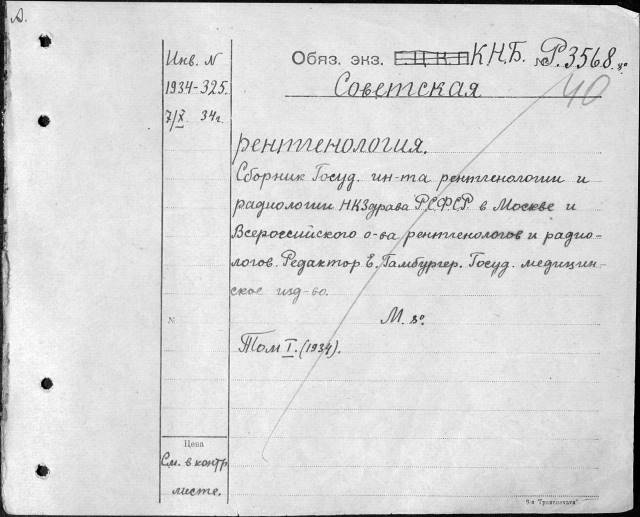 А.
Инв. N
1934-325.
7/X 34г.
Обяз. экз. Е.Ц.К.П К.Н.Б. № Р.3568. 8°
Советская
40
рентгенология.
Сборник Госуд. ин-та рентгенологии и
радиологии НКЗдрава Р.С.Ф.С.Р. в Москве и
Всероссийского о-ва рентгенологов и радио-
логов. Редактор Е. Гамбургер. Госуд. медицин-
ское изд-во.
N
М. 8°.
Том I. (1934).
Цена
См. в контр.
листе.